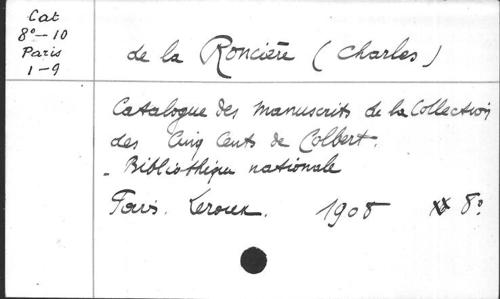 Cat
8°-10
Paris
1-9
de la Roncière (Charles)
Catalogue des manuscrits de la Collection
des Cinq Cents de Colbert.
- Bibliothèque nationale
Paris. Leroux. 1908 8°